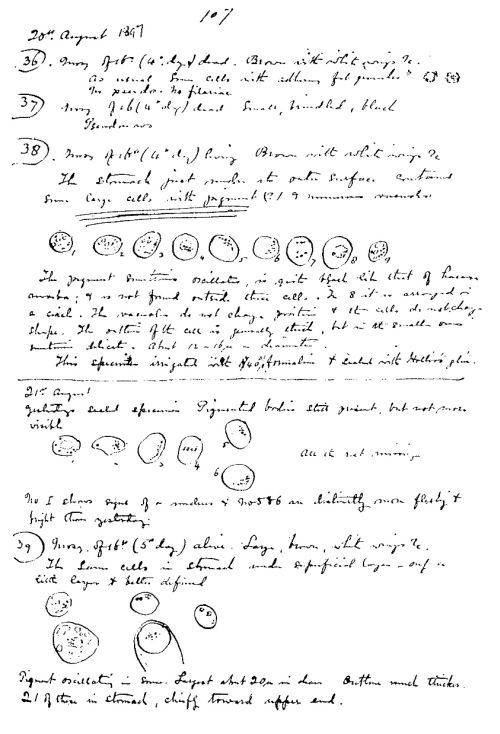 107
20th August 1897
36. Mosq. of 16th (4th day) dead. Brown with white wings &c.
As usual some cells with
No pseudo. No filariae
37 Mosq of 16 (4th day) dead Small, brindled, black
Pseudo
38. Mosq of 16th (4th d.) living Brown with white wings &c
The stomach just under its outer surface contained
some large cells with pigment (?) & numerous vacuoles
1 2 3 4 5 6 7 8 9
The pigment sometimes oscillates, is quite black like that of haem
amoeba; & is not found outside these cells. In 8 it is arranged in
a circle. The vacuoles do not change position & the cells do not change
shape. The outline of the cell is generally thick, but in the smaller ones
sometimes delicate. About 12-16µ in diameter.
This specimen irrigated with 40% formaline & sealed with
21st August
sealed specimen Pigmented bodies still present, but not more
visible
4 5 6
All it not
No 1 shows signs of a nucleus & No 5 & 6 are distinctly more fleshy &
bright than yesterday.
39) Mosq. of 16th (5th day) alive. Large, brown, white wings &c.
The same cells in stomach under superficial layer - only a
little larger & better defined
Pigment oscillating in some. Largest about 20µ in diam Outline much thicker.
21 of these in stomach, chiefly toward upper end.